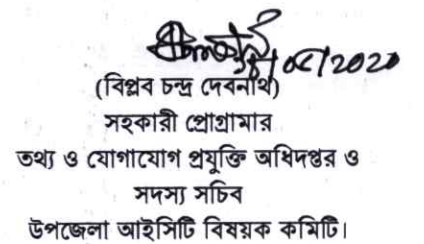 (বিপ্লব চন্দ্র দেবনাথ)
সহকারী প্রোগ্রামার
তথ্য ও যোগাযোগ প্রযুক্তি অধিদপ্তর ও
সদস্য সচিব
উপজেলা আইসিটি বিষয়ক কমিটি।